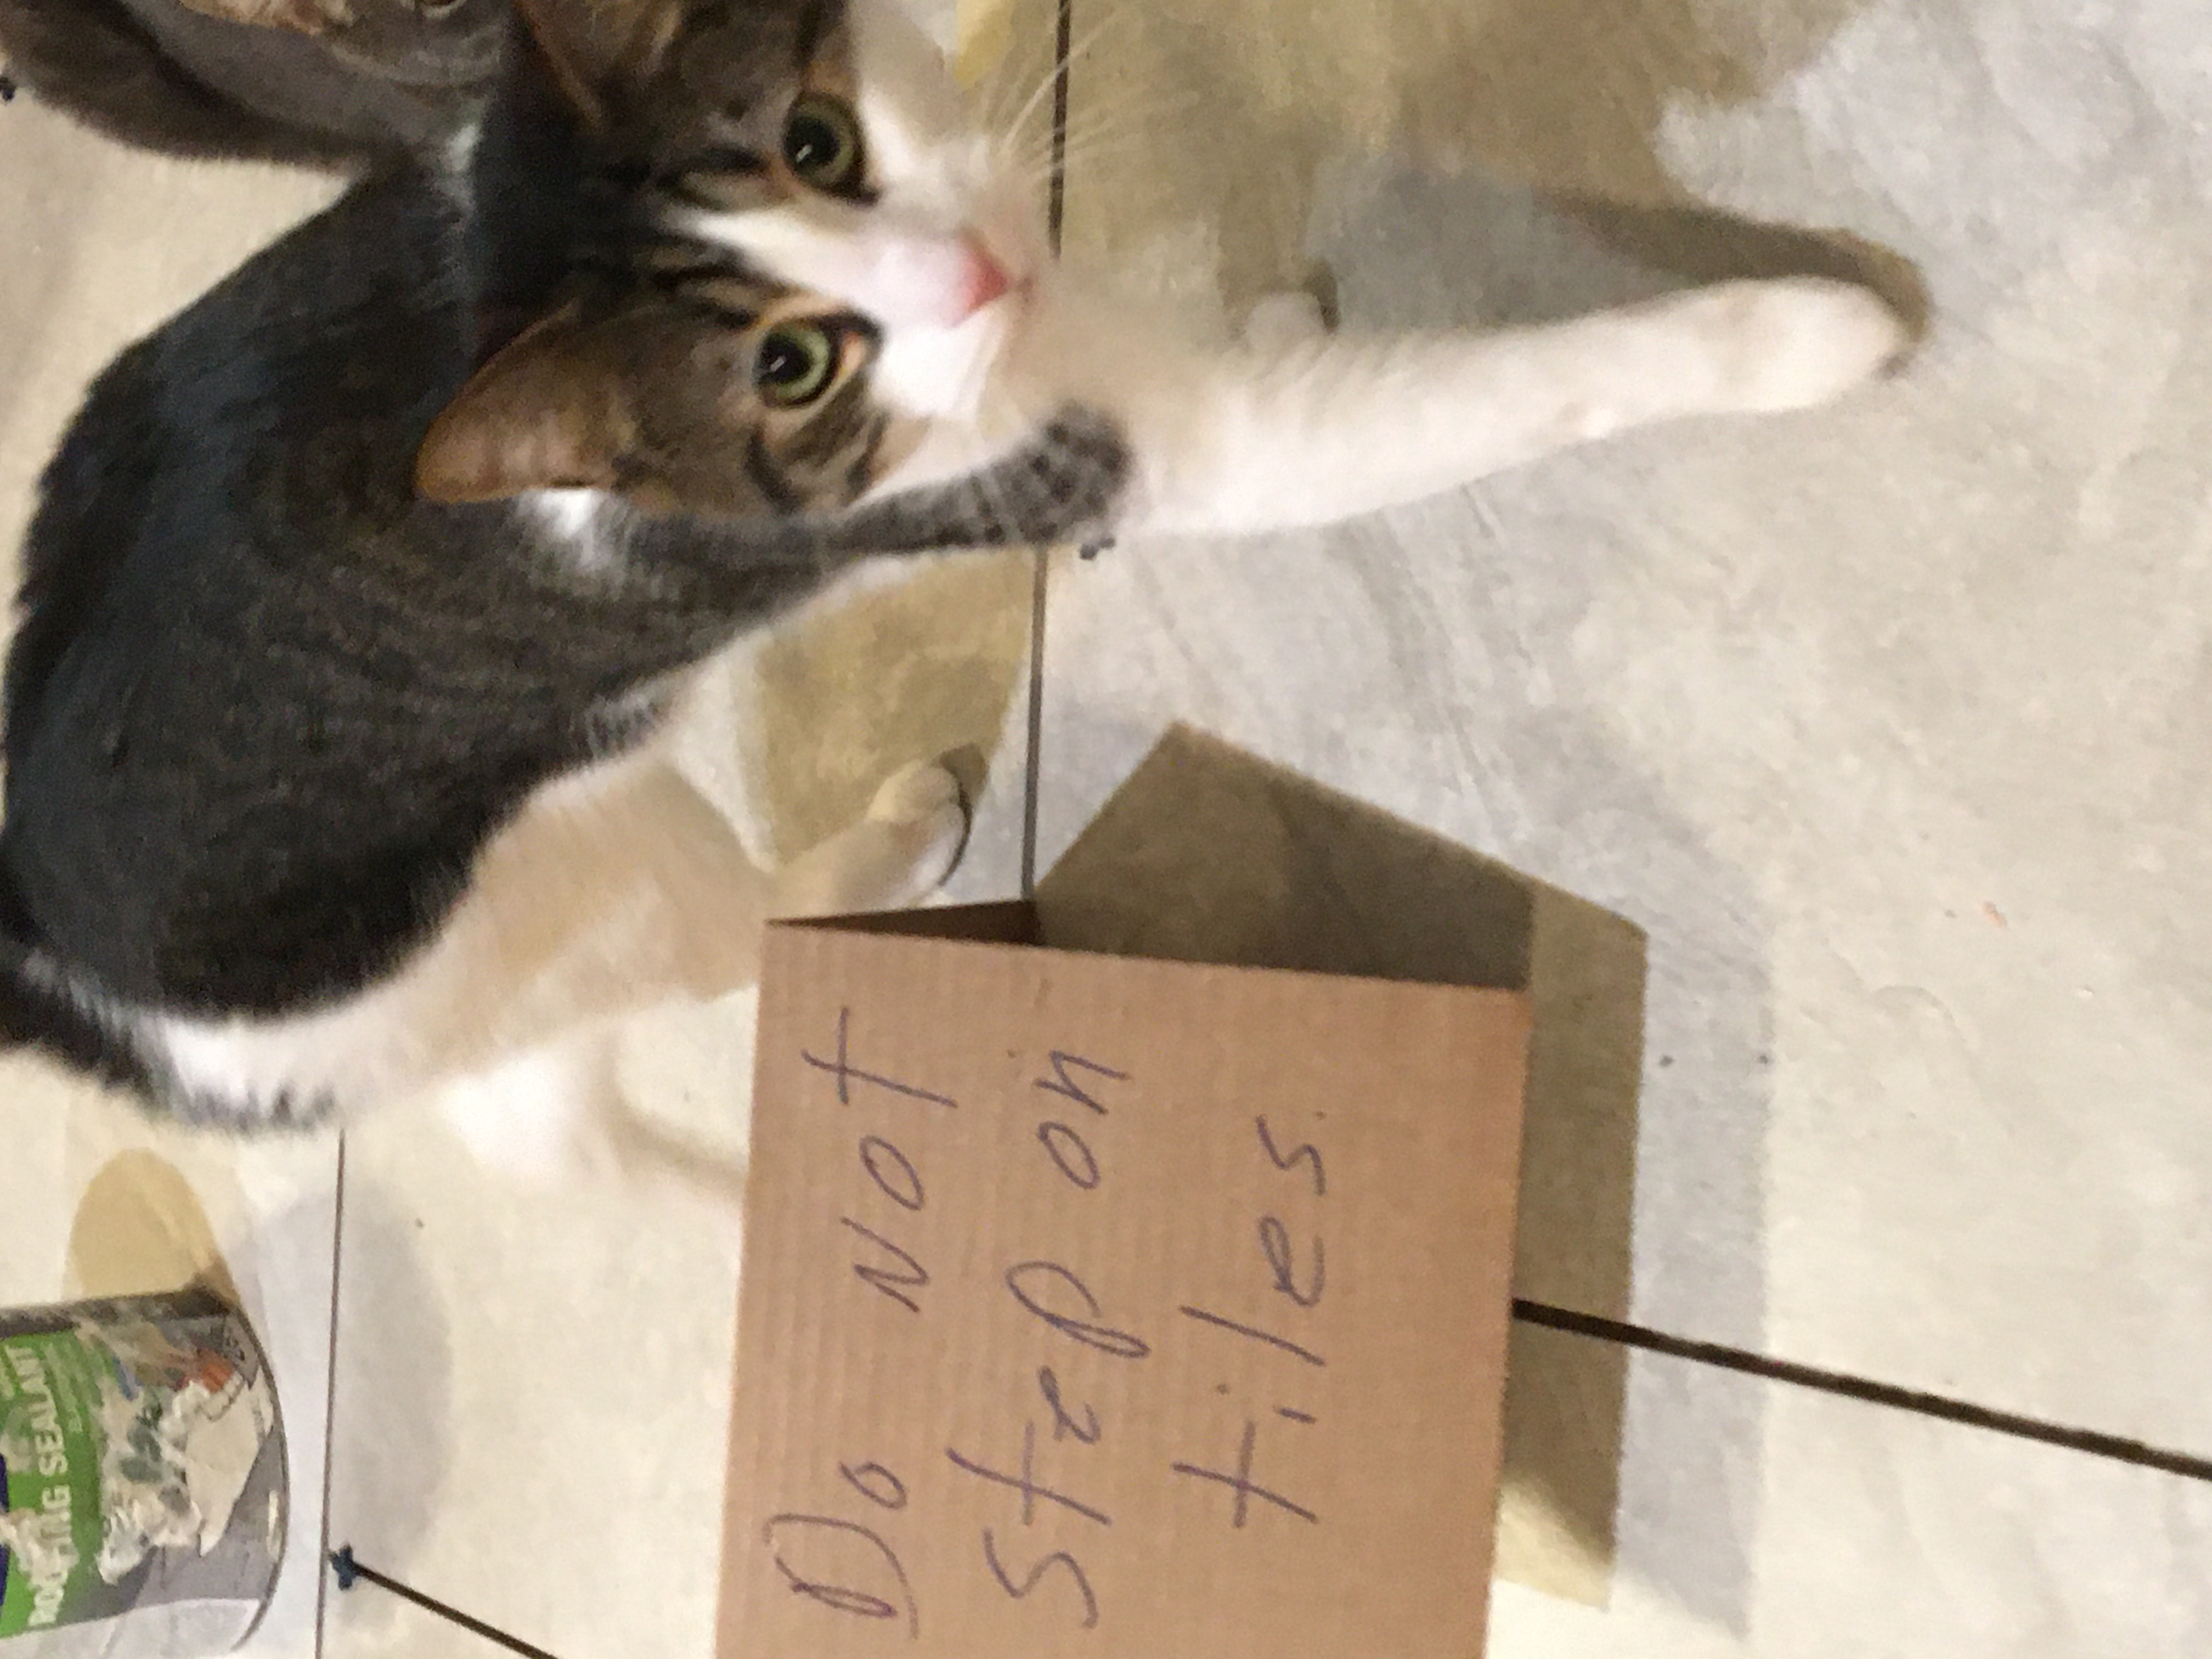 ROOFING SEALANT
Do Not
step on
tiles.